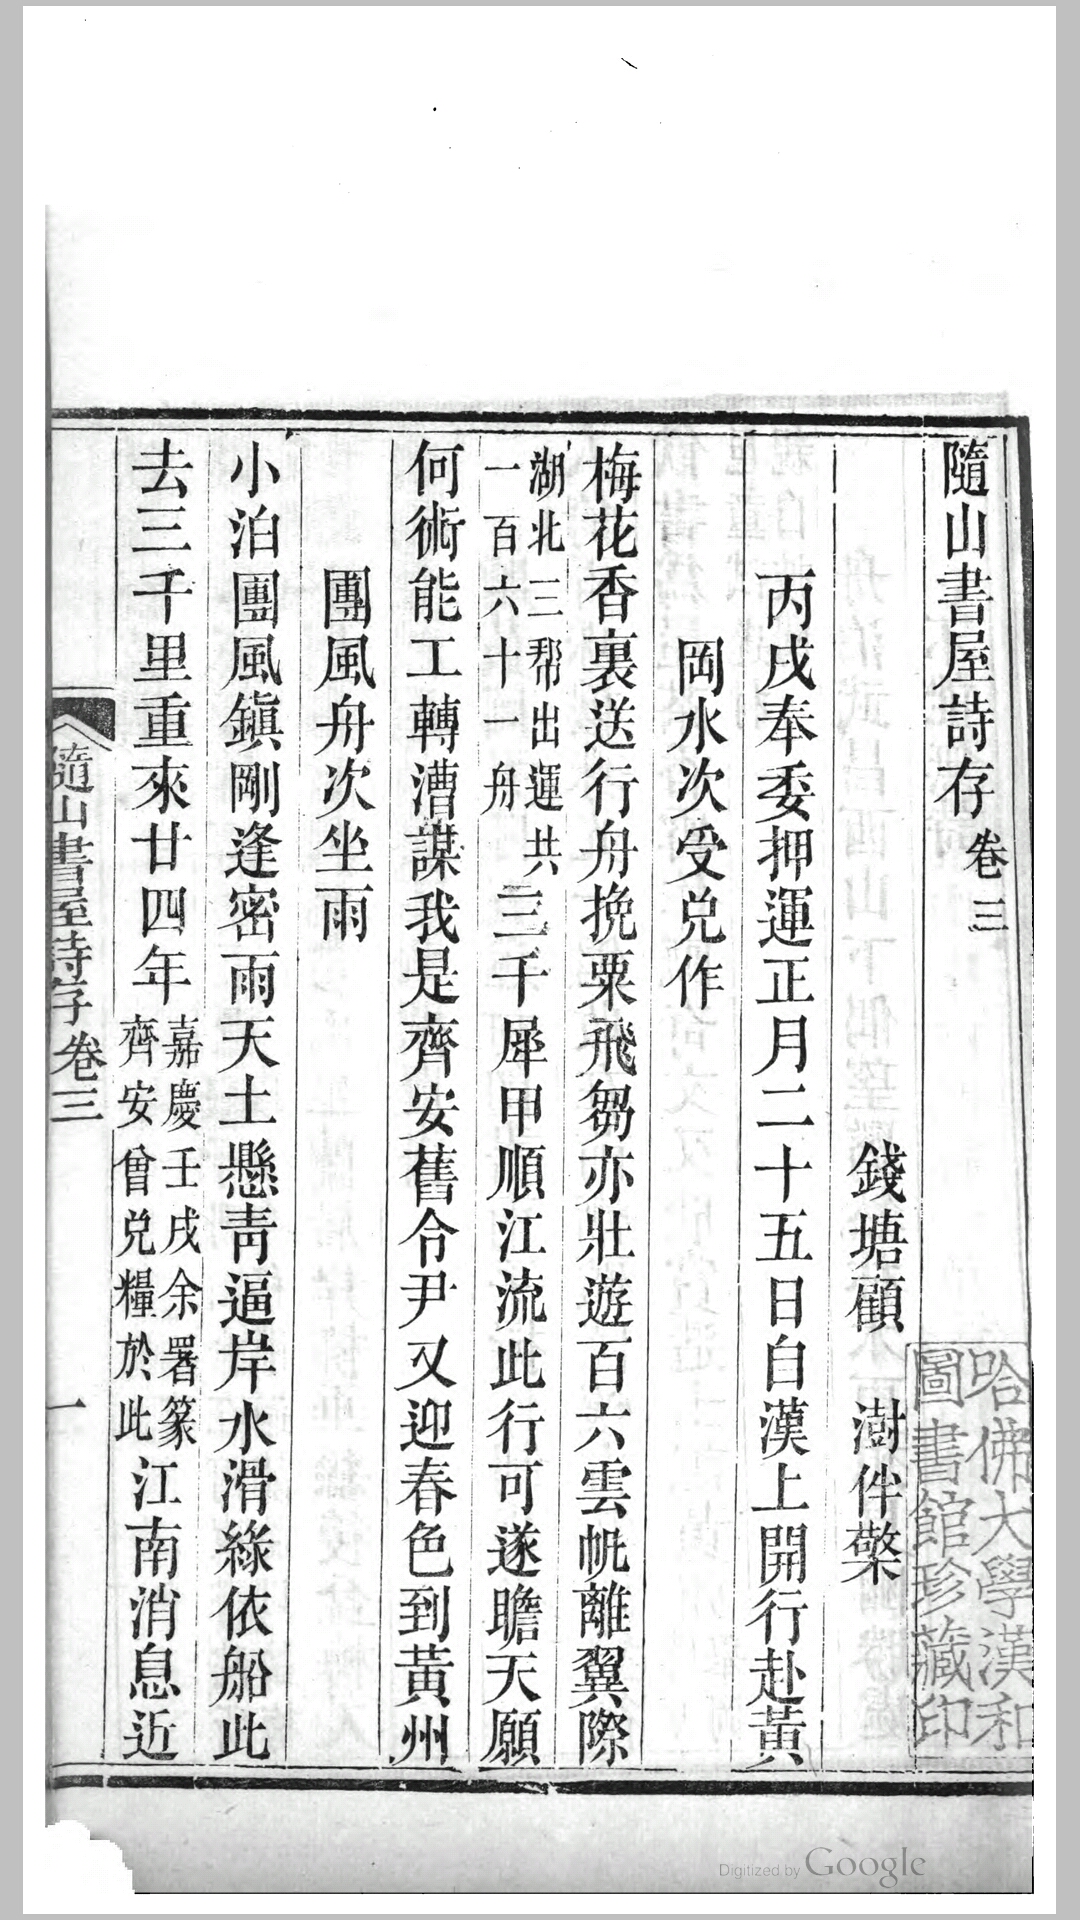 隨山書屋詩存卷三
錢塘顧 澍伴檠
丙戌奉委押運正月二十五日自漢上開行赴黃
岡水次受兌作
梅花香裏送行舟挽粟飛芻亦壯遊百六雲帆離翼際
湖北三幫出運共
一百六十一舟
三千犀甲順江流此行可遂瞻天願
何術能工轉漕謀我是齊安舊令尹又迎春色到黃州
團風舟次坐雨
小泊團風鎭剛逢密雨天土懸靑逼岸水滑綠依船此
去三千里重來廿四年
嘉慶壬戌余署篆
齊安曾兌糧於此
江南消息近
隨山書屋詩存卷三
一
哈佛大學漢和
圖書館珍藏印
Digitized by Google